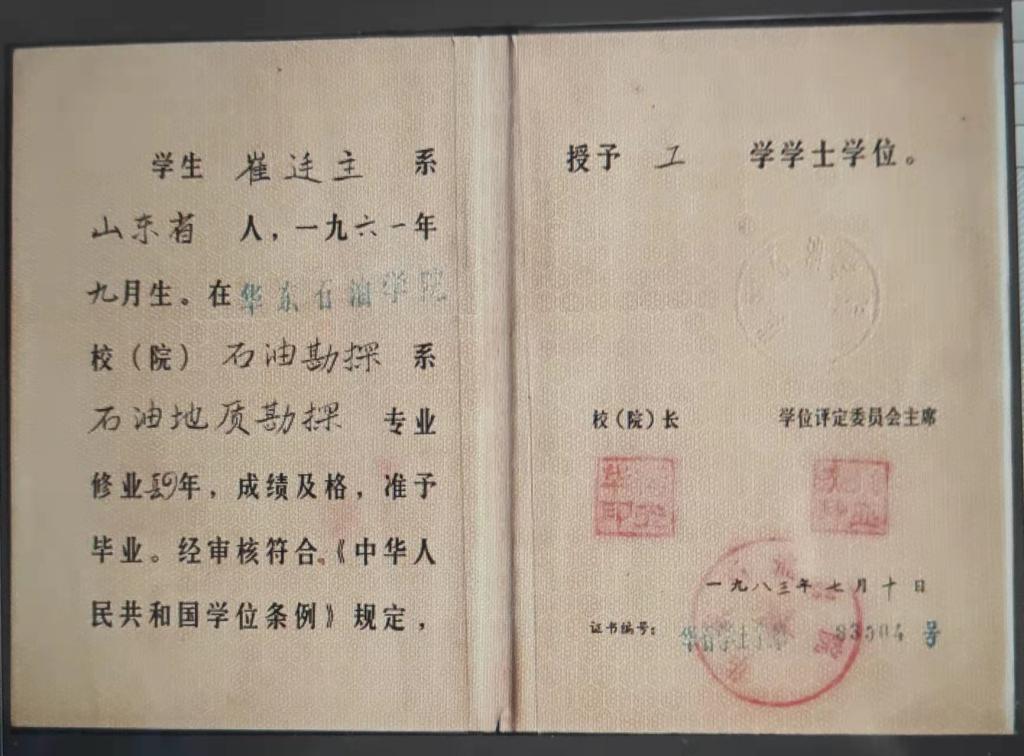 学生 崔廷主 系
山东省 人，一九六一年
九月生。在华东石油学院
校（院） 石油勘探 系
石油地质勘探 专业
修业四年，成绩及格，准予
毕业。经审核符合《中华人
民共和国学位条例》规定，
授予 工 学学士学位。
校（院）长 学位评定委员会主席
一九八三年七月十日
证书编号： 83504 号